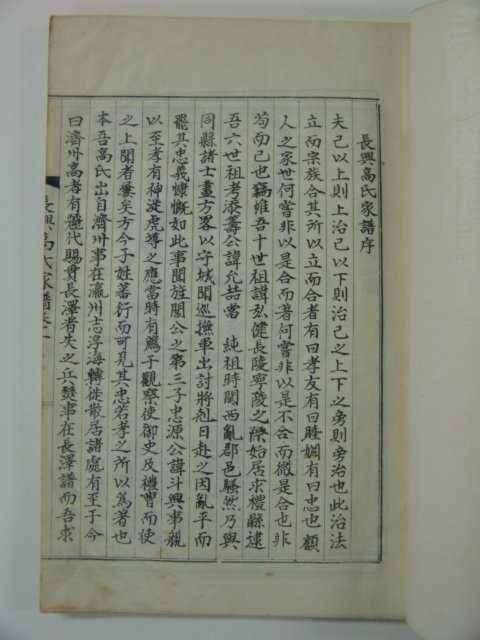 長興高氏家譜序
夫己以上則上治己以下則治己之上下之旁則旁治也此治法
立而宗族合其所以立而合者有曰孝友有曰睦婣有曰忠也顧
人之家世何嘗非以是合而著何嘗非以是不合而微是合也非
苟而已也竊惟吾十世祖諱弘健長陵寧陵之際始居求禮縣逮
吾六世祖考添壽公諱允喆當 純祖時関西亂郡邑騷然乃與
同縣諸士畫方畧以守城聞巡撫軍出討將剋日赴之因亂平而
罷其忠義慷慨如此事聞旌閭公之第三子忠源公諱斗興事親
以至孝有神泚虎導之應當時有薦于觀察使御史及禮曹而使
之上聞者屢矣方今子姓蕃衍而可見其忠若孝之所以為著也
本吾高氏出自濟州事在瀛州志浮海轉徙散居諸處有至于今
曰濟州高者有麗代賜貫長澤者失之兵燹事在長澤譜而吾求
長興高氏家譜卷一